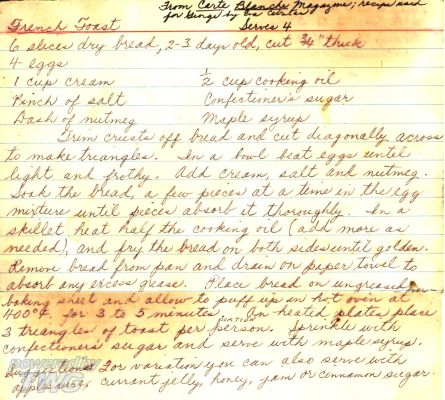 From Carte Blanche Magazine; recipe used
for
French Toast
Serves 4
6 slices dry bread, 2-3 days old, cut 3/4" thick
4 eggs
1 cup cream
1/2 cup cooking oil
Pinch of salt
Confectioner's sugar
Dash of nutmeg
Maple syrup
Trim crusts off bread and cut diagonally across
to make triangles. In a bowl beat eggs until
light and frothy. Add cream, salt and nutmeg.
Soak the bread, a few pieces at a time in the egg
mixture until pieces absorb it thoroughly. In a
skillet heat half the cooking oil (add more as
needed), and fry the bread on both sides until golden.
Remove bread from pan and drain on paper towel to
absorb any excess grease. Place bread on ungreased
baking sheet and allow to puff up in hot oven at
400°F, for 3 to 5 minutes. On heated plates place
3 triangles of toast per person. Sprinkle with
confectioners sugar and serve with maple syrup.
Suggestions For variation you can also serve with
applesauce, currant jelly, honey, jam or cinnamon sugar.
powered by
TWG